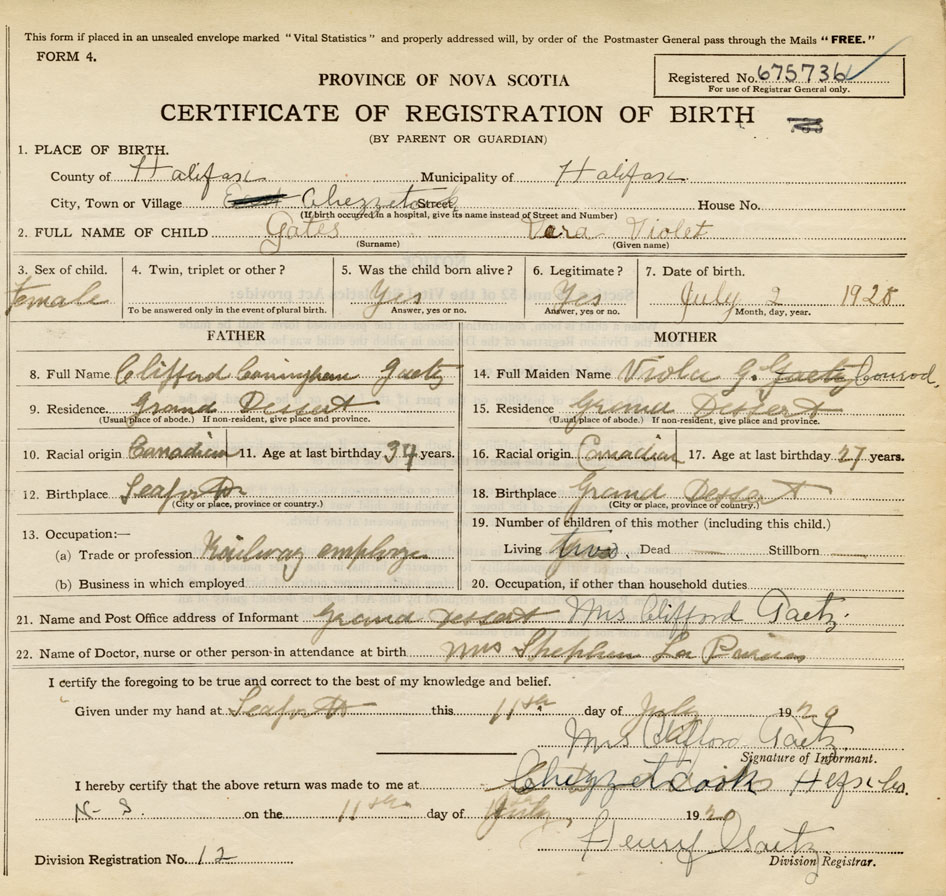 This form if placed in an unsealed envelope marked "Vital Statistics" and properly addressed will, by order of the Postmaster General pass through the Mails "FREE."
FORM 4.
Registered No. 675736
For use of Registrar General only.
PROVINCE OF NOVA SCOTIA
CERTIFICATE OF REGISTRATION OF BIRTH
(BY PARENT OR GUARDIAN)
1. PLACE OF BIRTH.
County of Halifax Municipality of Halifax
City, Town or Village East Chezzetcook Street House No.
(If birth occurred in a hospital, give its name instead of Street and Number)
2. FULL NAME OF CHILD Gates Vera Violet
(Surname) (Given name)
3. Sex of child. 4. Twin, triplet or other? 5. Was the child born alive? 6. Legitimate? 7. Date of birth.
Female Yes Yes July 2 192
To be answered only in the event of plural birth. Answer, yes or no. Answer, yes or no. Month, day, year.
FATHER MOTHER
8. Full Name Clifford Gaetz 14. Full Maiden Name Viola G. Gaetz Conrod
9. Residence Grand Dessert 15. Residence Grand Dessert
(Usual place of abode.) If non-resident, give place and province. (Usual place of abode.) If non-resident, give place and province.
10. Racial origin Canadian 11. Age at last birthday 34 years. 16. Racial origin Canadian 17. Age at last birthday 27 years.
12. Birthplace Seaforth 18. Birthplace Grand Dessert
(City or place, province or country.) (City or place, province or country.)
13. Occupation:— 19. Number of children of this mother (including this child.)
(a) Trade or profession Railway employee Living Dead — Stillborn —
(b) Business in which employed 20. Occupation, if other than household duties
21. Name and Post Office address of Informant Grand Dessert Mrs Clifford Gaetz
22. Name of Doctor, nurse or other person in attendance at birth Mrs Stephen La Pierre
I certify the foregoing to be true and correct to the best of my knowledge and belief.
Given under my hand at Seaforth this 11th day of July 1929
Mrs Clifford Gaetz
Signature of Informant.
I hereby certify that the above return was made to me at Chezzetcook Hfx Co.
N.S. on the 11th day of July, 192
Henry Gaetz
Division Registration No. 12 Division Registrar.